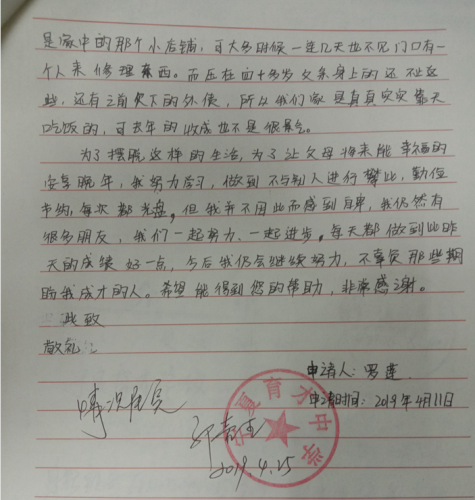 是家中的那个小店铺,可大多时候一连几天也不见门口有一
个人来修理东西。而压在四十多岁父亲身上的还不止这
些,还有之前欠下的外债,所以我们家是真真实实靠天
吃饭的,可去年的收成也不是很景气。
为了摆脱这样的生活,为了让父母将来能幸福的
安享晚年,我努力学习,做到不与别人进行攀比,勤俭
节约,每次都光盘。但我并不因此而感到自卑,我仍然有
很多朋友,我们一起努力、一起进步。每天都做到比昨
天的成绩好一点,今后我仍会继续努力,不辜负那些期
盼我成才的人。希望能得到您的帮助,非常感谢。
此致
敬礼
申请人:罗莲
申请时间:2019年4月11日
情况属实
夏育才中学
2019.4.25